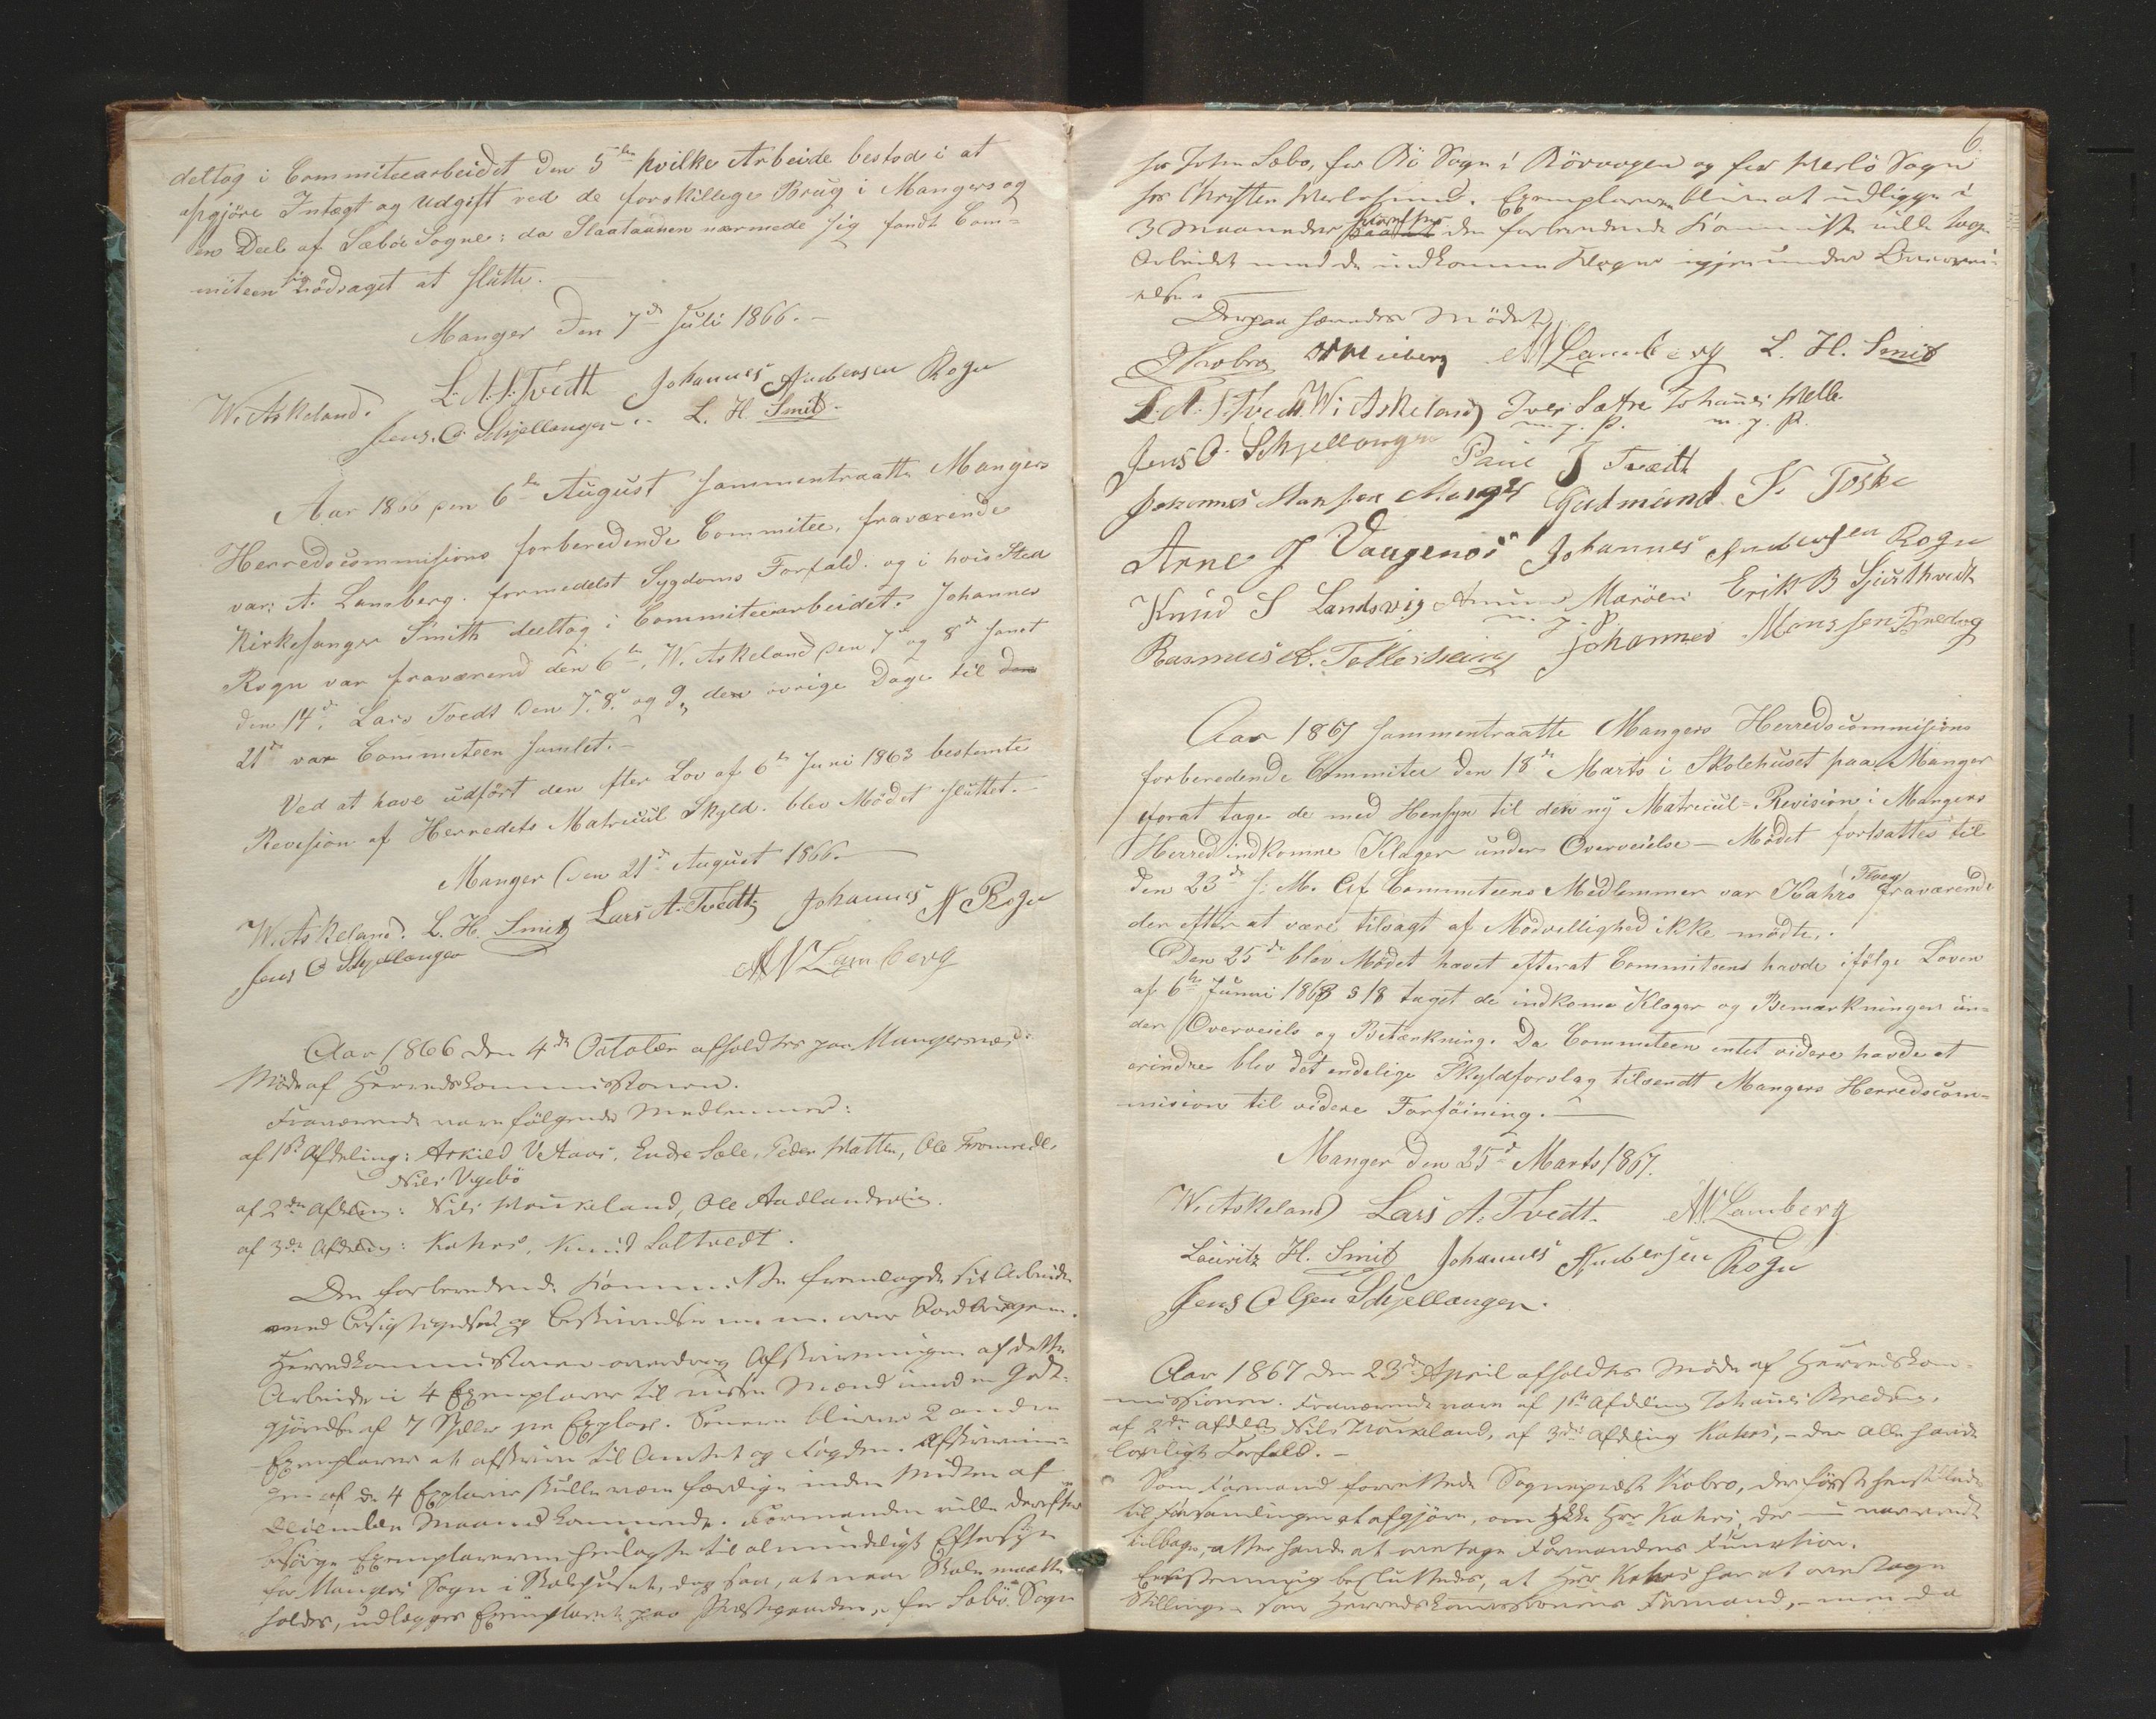 deltog i Commiteearbeidet den 5te hvilke Arbeide bestod i at
opgjöre Intægt og Udgift ved de forskillege Brug i Mangers og
en Deel af Sæböe Sogne; da Slaataanen nærmede sig fandt Com-
miteen sig nödraget at slutte.
Manger den 7de Juli 1866.-
W. Askeland. L. A. S. Tvedt Johannes Andersen Rogn
Jens. O. Schjellanger.. L. H. Smith.
Aar 1866 den 6te August sammentraatte Mangers
Herredscommisions forberedende Commitee, fraværende
var: A. Lamberg. formedelst Sygdoms Forfald. og i hvis Sted
Kirkesanger Smith deeltog i Commiteearbeidet. Johannes
Rogn var fraværend den 6te, W. Askeland den 7de og 8de samt
den 14de. Lars Tvedt den 7. 8. og 9, den övrige Dage til den
21de var Commiteen samlet.-
Ved at have udfört den efter Lov af 6te Juni 1863 bestemte
Revision af Herredets Matricul Skyld. blev Mödet sluttet.-
Manger den 21de August 1866.-
W. Askeland. L. H. Smith Lars A. Tvedt Johannes A Rogn
Jens O Schjellanger AN Lamberg
Aar 1866 den 4de October afholdtes paa Mangernæs
Möde af Herredskommissionen.
Fraværende vare fölgende Medlemmer:
af 1ste Afdeling: Askild Vetaas, Endre Sæle, Peder Hatten, Ole Fromreide
Nils Vegebö
af 2den Afdeling: Nils Houkeland, Ole Aadlandsvig.
af 3die Afdeling: Kahrs, Knud Saltvedt.
Den forberedende Kommitte fremlagde sit Arbeide
med Besigtigelse og Beskrivelse m. m. over Jordbrugene.
Herredskommissionen overdrog Afskrivningen af dette
Arbeide i 4 Exemplarer til Mænd imod en Godt-
gjörelse af 7 Spdlr pr Explar. Senere blive 2 andre
Exemplarer at afskrive til Amtet og Fogden. Afskrivnin-
gen af de 4 Explarer skulle være færdige inden Midten af
December Maaned kommende. Formanden vilde derefter
besörge Exemplarerne henlagte til almindeligt Eftersyn
for Mangers Sogn i Skolehuset, dog saa, at naar Skole maatte
holdes, udlægges Exemplaret paa Præstegaarden, for Sæbö Sogn
6.
hos John Sæbö, for Bö Sogn i Bövaagen og for Herlö Sogn
hos Christen Herlösund. Exemplarerne blive at udligge i
3 Maaneder hvorefter den forberedende Kommitte vilde tage
Arbeidet med de indkomne Klager igjen under Overvei-
else.
Derpaa hævedes Mödet
Kobro AN Lamberg L. H. Smith
L. A. S. Tvedt. W. Askeland Iver Sætre Johannes Helle
m. p. P. m. p. P.
Jens O. Schjellanger Paul J Tvedt
Johannes Hansen Mangr Gudmund K. Toska
Arne J Vaagenes Johannes Andersen Rogn
Knud S Landsvig Amund Maröen Erik B Sjurthvedt
m. p. P.
Rasmus A. Tellesheing Johannes Monssen Bredvig
Aar 1867 sammentraatte Mangers Herredscommisions
forberedende Commitee den 18de Marts i Skolehuset paa Manger
forat tage de med Hensyn til den ny Matricul-Revision i Mangers
Herred indkomne Klager under Overveielse - Mödet fortsattes til
den 23de s. M. Af Commiteens Medlemmer var Kahrs fraværende
der efter at være tilsagt af Modvellighed ikke mödte.
Den 25de blev Mödet hævet efterat Commiteens havde ifölge Loven
af 6te Junni 1863 § 18 taget de indkomne Klager og Bemærkninger un-
der Overveiels og Betænkning. Da Commiteen intet videre havde at
erindre blev det endelige Skyldforslag tilsendt Mangers Herredscom-
mision til videre Forföining.
Manger den 25de Marts 1867.
W. Askeland Lars A. Tvedt. AN Lamberg
Lauritz H. Smith Johannes Andersen Rogn
Jens Olsen Schjellanger.
Aar 1867 den 23de April afholdtes Möde af Herredskom-
missionen. Fraværende vare af 1ste Afdeling Johannes Bredvig,
af 2den Afdeling Nils Houkeland, af 3die Afdeling Kahrs, - der alle havde
lovligt Forfald.-
Som Formand forrettede Sognepræst Kobro, der först henstillede
til Forsamlingen at afgjöre, om ikke Hr Kahrs, der nu var vendt
tilbage, atter havde at overtage Formandens Funktion.
besluttedes, at Herr Kahrs har at overtage
Stillingen som Herredskommissionens Formand, - men da